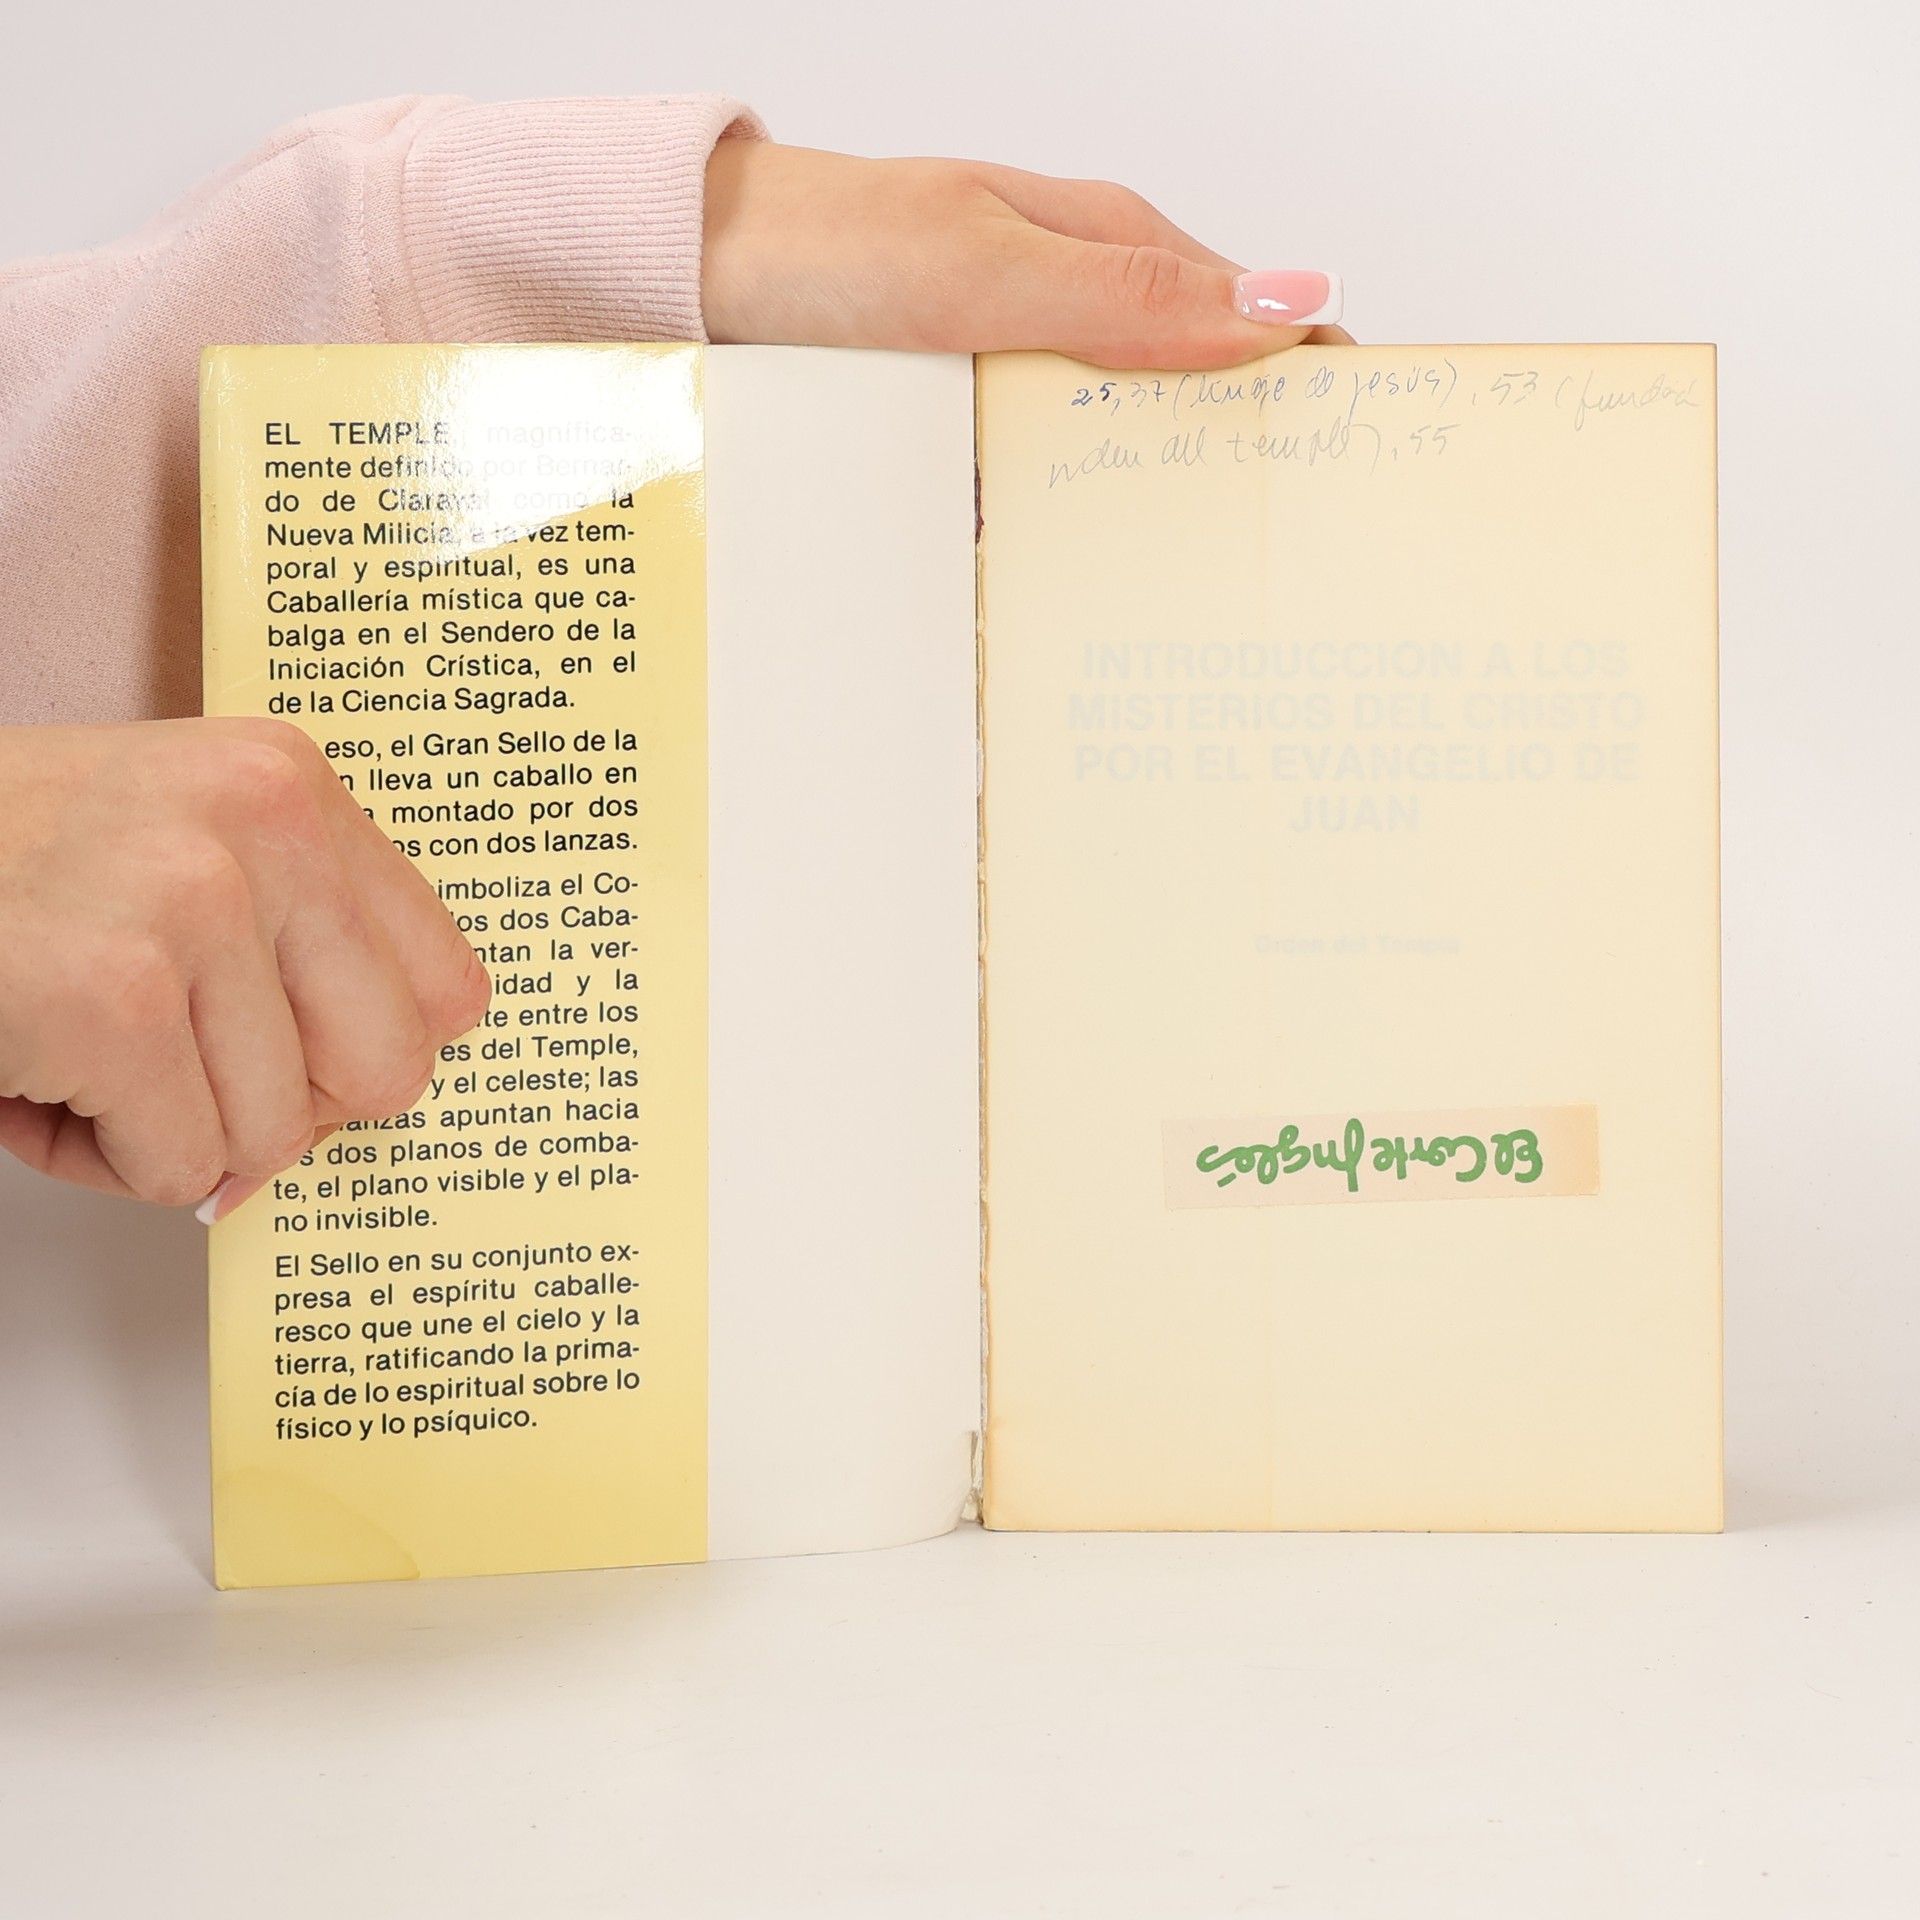 EL TEMPLE, magnífica-
mente definido por Bernar-
do de Claraval como la
Nueva Milicia, a la vez tem-
poral y espiritual, es una
Caballería mística que ca-
balga en el Sendero de la
Iniciación Crística, en el
de la Ciencia Sagrada.
eso, el Gran Sello de la
n lleva un caballo en
a montado por dos
os con dos lanzas.
imboliza el Co-
los dos Caba-
ntan la ver-
idad y la
te entre los
es del Temple,
y el celeste; las
lanzas apuntan hacia
s dos planos de comba-
te, el plano visible y el pla-
no invisible.
El Sello en su conjunto ex-
presa el espíritu caballe-
resco que une el cielo y la
tierra, ratificando la prima-
cía de lo espiritual sobre lo
físico y lo psíquico.
25, 37 (linaje de Jesús), 53 (fundac
orden del temple), 55
INTRODUCCION A LOS
MISTERIOS DEL CRISTO
POR EL EVANGELIO DE
JUAN
Orden del Temple
El Corte Inglés